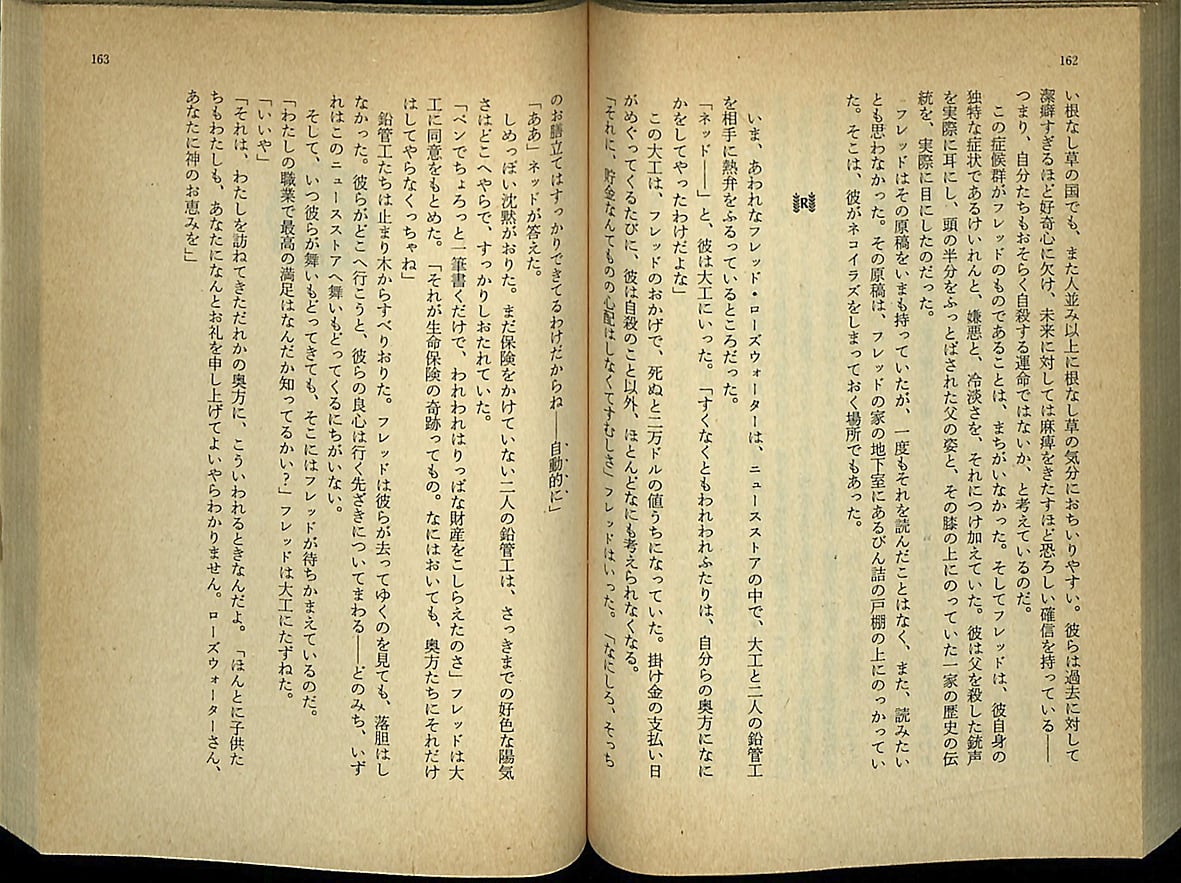 162
い根なし草の国でも、また人並み以上に根なし草の気分におちいりやすい。彼らは過去に対して
潔癖すぎるほど好奇心に欠け、未来に対しては麻痺をきたすほど恐ろしい確信を持っている——
つまり、自分たちもおそらく自殺する運命ではないか、と考えているのだ。
この症候群がフレッドのものであることは、まちがいなかった。そしてフレッドは、彼自身の
独特な症状であるけいれんと、嫌悪と、冷淡さを、それにつけ加えていた。彼は父を殺した銃声
を実際に耳にし、頭の半分をふっとばされた父の姿と、その膝の上にのっていた一家の歴史の伝
統を、実際に目にしたのだった。
フレッドはその原稿をいまも持っていたが、一度もそれを読んだことはなく、また、読みたい
とも思わなかった。その原稿は、フレッドの家の地下室にあるびん詰の戸棚の上にのっかってい
た。そこは、彼がネコイラズをしまっておく場所でもあった。
R
いま、あわれなフレッド・ローズウォーターは、ニュースストアの中で、大工と二人の鉛管工
を相手に熱弁をふるっているところだった。
「ネッド——」と、彼は大工にいった。「すくなくともわれわれふたりは、自分らの奥方になに
かをしてやったわけだよな」
この大工は、フレッドのおかげで、死ぬと二万ドルの値うちになっていた。掛け金の支払い日
がめぐってくるたびに、彼は自殺のこと以外、ほとんどなにも考えられなくなる。
「それに、貯金なんてものの心配はしなくてすむしさ」フレッドはいった。「なにしろ、そっち
のお膳立てはすっかりできてるわけだからね——自動的に」
「ああ」ネッドが答えた。
しめっぽい沈黙がおりた。まだ保険をかけていない二人の鉛管工は、さっきまでの好色な陽気
さはどこへやらで、すっかりしおたれていた。
「ペンでちょろっと一筆書くだけで、われわれはりっぱな財産をこしらえたのさ」フレッドは大
工に同意をもとめた。「それが生命保険の奇跡ってもの。なにはおいても、奥方たちにそれだけ
はしてやらなくっちゃね」
鉛管工たちは止まり木からすべりおりた。フレッドは彼らが去ってゆくのを見ても、落胆はし
なかった。彼らがどこへ行こうと、彼らの良心は行く先ざきについてまわる——どのみち、いず
れはこのニュースストアへ舞いもどってくるにちがいない。
そして、いつ彼らが舞いもどってきても、そこにはフレッドが待ちかまえているのだ。
「わたしの職業で最高の満足はなんだか知ってるかい？」フレッドは大工にたずねた。
「いいや」
「それは、わたしを訪ねてきただれかの奥方に、こういわれるときなんだよ。「ほんとに子供た
ちもわたしも、あなたになんとお礼を申し上げてよいやらわかりません。ローズウォーターさん、
あなたに神のお恵みを」」
163